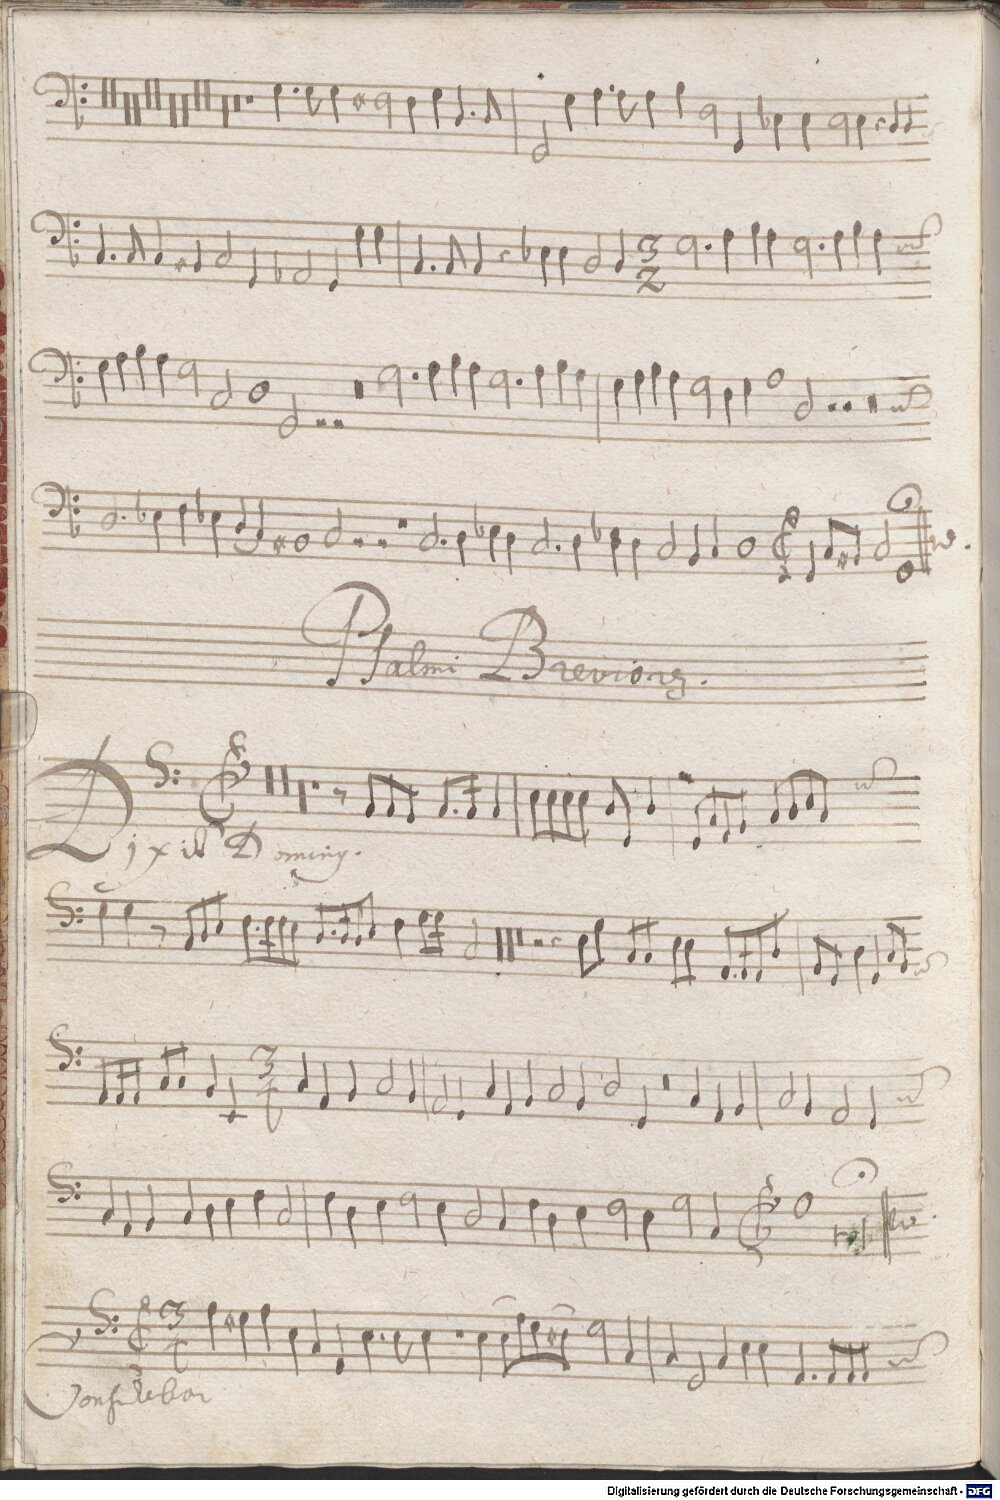 3
2
Psalmi Breviores.
Dixit Dominus.
3
1
3
1
Confitebor
Digitalisierung gefördert durch die Deutsche Forschungsgemeinschaft - DFG